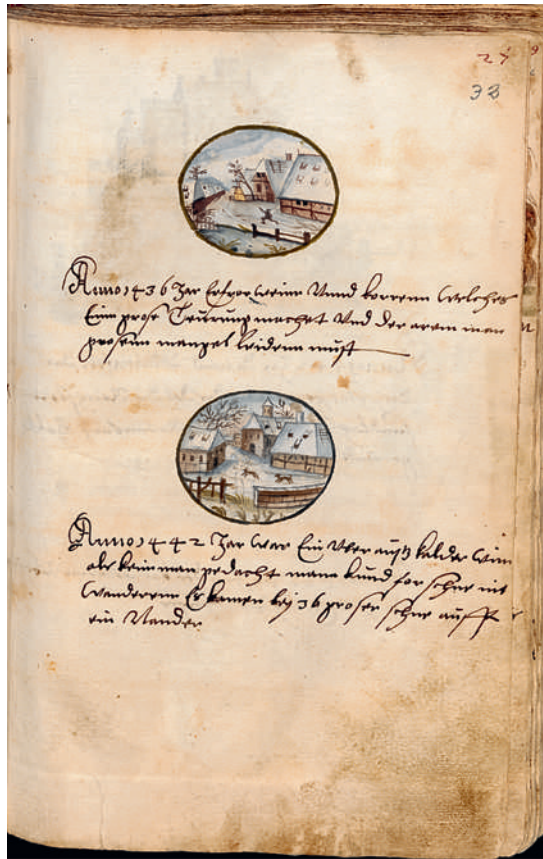 27
38
Anno 1436 Jar Erfror weinn Vnnd korrenn Welches
Einn grose Teurung machet Vnd der arem man
grosenn mangel leidenn must
Anno 1442 Jar war Ein Vber auß kalder Winn
als kein man gedacht mann kund for schne nit
Wanderenn Es kamen bej 36 groser schne auff
ein Nander